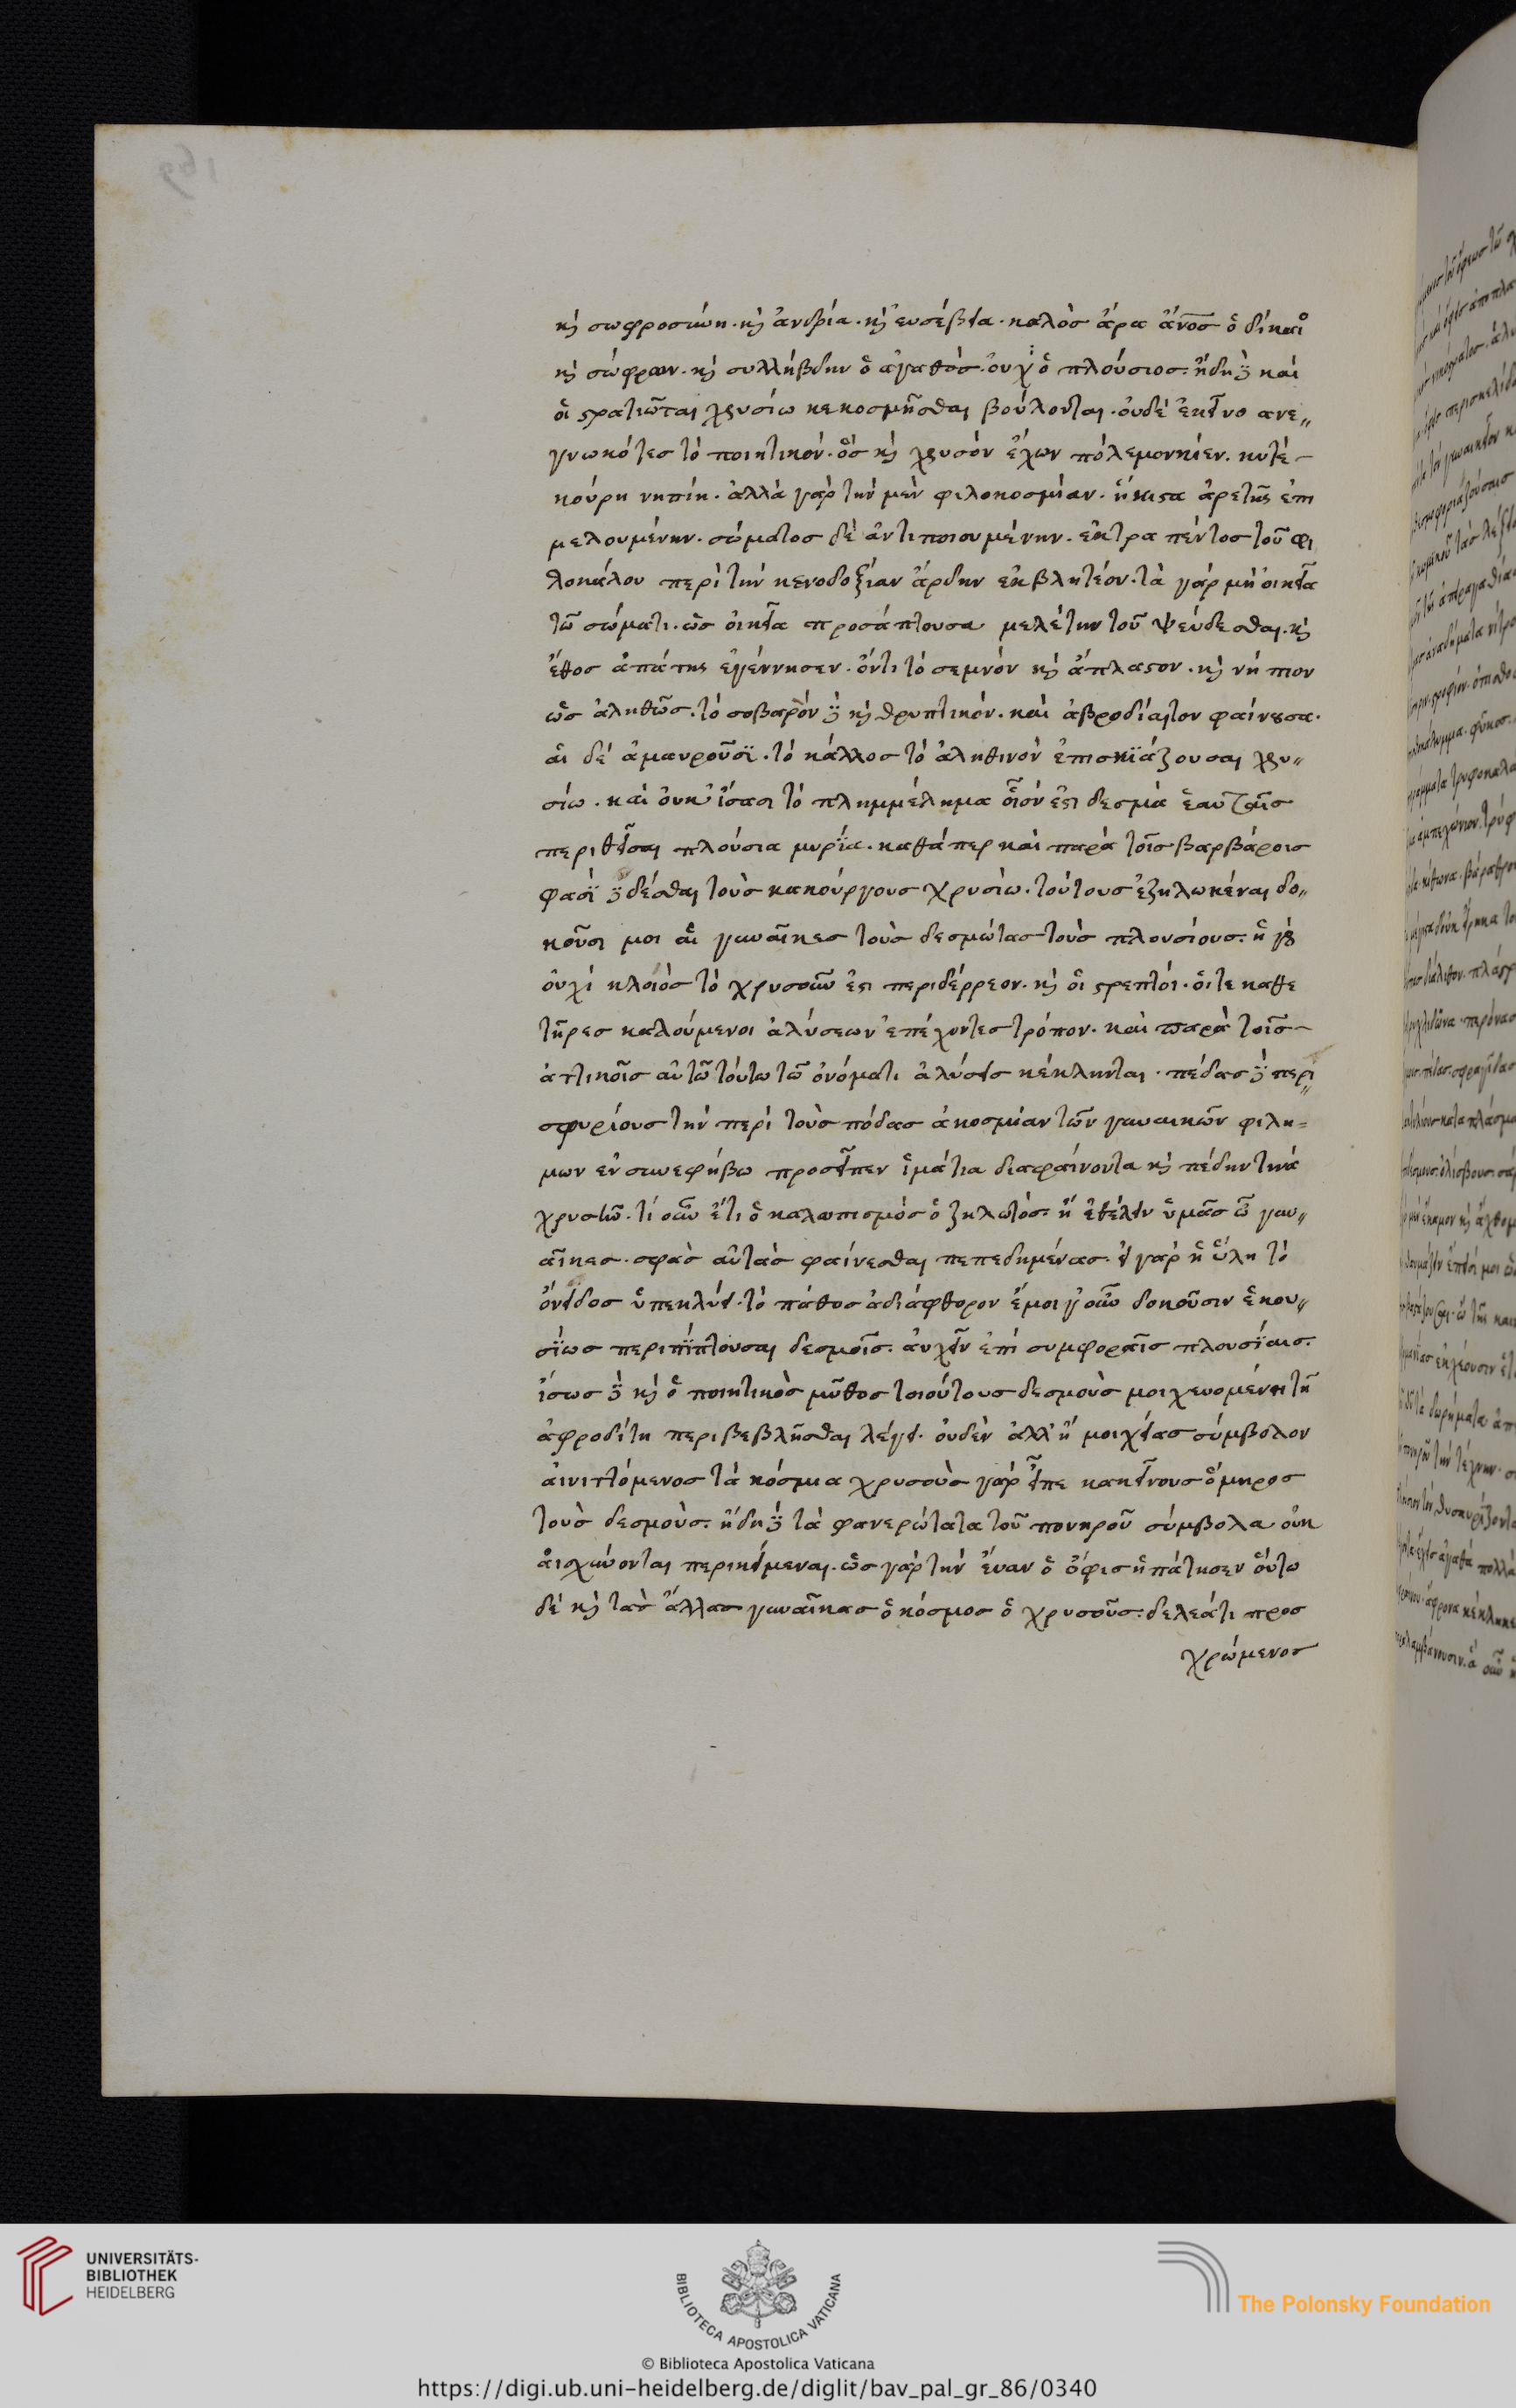 καὶ σωφροσύνη. καὶ ἀνδρία. καὶ εὐσέβεια. καλὸσ ἄρα ἄνοσ ὁ δίκαιο
καὶ σώφρων. καὶ συλλήβδην ὁ ἀγαθόσ. οὐχ ὁ πλούσιοσ. ἤδη δὲ καὶ
οἱ στρατιῶται χρυσίω κεκοσμῆσθαι βούλονται. οὐδὲ ἐκεῖνο ανε„
γνωκότεσ τὸ ποιητικόν. ὅσ καὶ χρυσὸν ἔχων πόλεμονκίεν. ηυτέ
κούρη νηπίη. ἀλλὰ γὰρ τὴν μὲν φιλοκοσμίαν. ἥκιστα ἀρετῆσ ἐπι
μελουμένην. σώματοσ δὲ ἀντιποιουμένην. ἐκτρα πέντοσ τοῦ φι
λοκάλου περὶ τὴν κενοδοξίαν ἄρδην ἐκβλητέον. τὰ γὰρ μὴ οἰκεῖα
τῶ σώματι. ὡσ οἰκεῖα προσάπτουσα μελέτην τοῦ ψεύδεσθαι. καὶ
ἔθοσ ἀπάτησ ἐγέννησεν. ὄντι τὸ σεμνὸν καὶ ἄπλαστον. καὶ νήπιον
ὡσ ἀληθῶσ. τὸ σοβαρὸν δὲ καὶ θρυπτικόν. καὶ ἁβροδίαιτον φαίνουσα.
αἱ δὲ ἀμαυροῦσϊ. τὸ κάλλοσ τὸ ἀληθινὸν ἐπισκϊάζουσαι χρυ„
σίω. καὶ οὐκ ἴσασι τὸ πλημμέλημα οἷόν ἐστι δεσμὰ ἑαυταῖσ
περιθεῖσαι πλούσια μυρΐα. καθάπερ καὶ παρὰ τοῖσ βαρβάροισ
φασὶ δὲ δέσθαι τοὺσ κακούργουσ χρυσίω. τούτουσ ἐζηλωκέναι δο„
κοῦσι μοι αἱ γυναῖκεσ τοὺσ δεσμώτασ τοὺσ πλουσίουσ. ἢ γὰρ
οὐχὶ κλοιὸσ τὸ χρυσοῦν ἐστι περιδέρρεον. καὶ οἱ στρεπτοί. οἵ τε καθε
τῆρεσ καλούμενοι ἁλύσεων ἐπέχοντεσ τρόπον. καὶ παρὰ τοῖσ
ἀττικοῖσ αὐτῶ τούτω τῶ ὀνόματι ἁλύσεισ κέκληνται. πέδασ δὲ περι
σφυρίουσ τὴν περὶ τοὺσ πόδασ ἀκοσμίαν τῶν γυναικῶν φιλη=
μων ἐν συνεφήβω προσεῖπεν ἱμάτια διαφαίνοντα καὶ πέδην τινὰ
χρυσῶ. τί οὖν ἔτι ὁ καλωπισμὸσ ὁ ζηλωτόσ. ἢ ἐθέλειν ὑμᾶσ ὦ γυν„
αῖκεσ. σφᾶσ αὐτὰσ φαίνεσθαι πεπεδημένασ. εἰ γὰρ ἡ ὕλη τὸ
ὄνειδοσ ὑπεκλύει. τὸ πάθοσ ἀδιάφθορον ἔμοι γοῦν δοκοῦσιν ἑκου„
σΐωσ περιπΐπτουσαι δεσμοῖσ. αὐχεῖν ἐπὶ συμφοραῖσ πλουσΐαισ.
ἴσωσ δὲ καὶ ὁ ποιητικὸσ μῦθοσ τοιούτουσ δεσμοὺσ μοιχευομένη τῆ
ἀφροδίτη περιβεβλῆσθαι λέγει. οὐδὲν ἀλλ' ἢ μοιχείασ σύμβολον
αἰνιττόμενοσ τὰ κόσμια χρυσοῦσ γὰρ εἶπε κακείνουσ ὅμηροσ
τοὺσ δεσμούσ. ἤδη δὲ τὰ φανερώτατα τοῦ πονηροῦ σύμβολα οὐκ
αἰσχύνονται περικείμεναι. ὡσ γὰρ τὴν ἔυαν ὁ ὄφισ ἠπάτησεν οὕτω
δὲ καὶ τὰσ ἄλλασ γυναῖκασ ὁ κόσμοσ ὁ χρυσοῦσ. δελεάτι προσ
χρώμενοσ
UNIVERSITÄTS-
BIBLIOTHEK
HEIDELBERG
BIBLIOTECA APOSTOLICA VATICANA
The Polonsky Foundation
© Biblioteca Apostolica Vaticana
https://digi.ub.uni-heidelberg.de/diglit/bav_pal_gr_86/0340